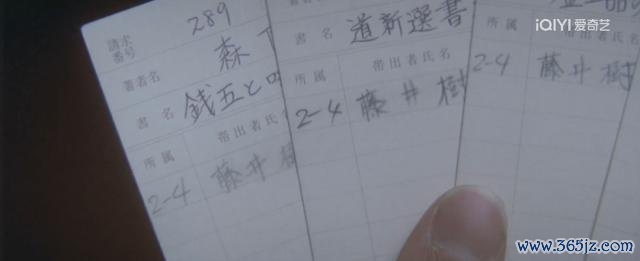 289
請求
番号
著者名 森
書名 銭五と
所属 帯出者氏名
2-4 藤井樹
書名 道新選書
所属 帯出者氏名
2-4 藤井樹
所属 帯出者氏名
2-4 藤井樹
iQIYI 爱奇艺
www.365jz.com